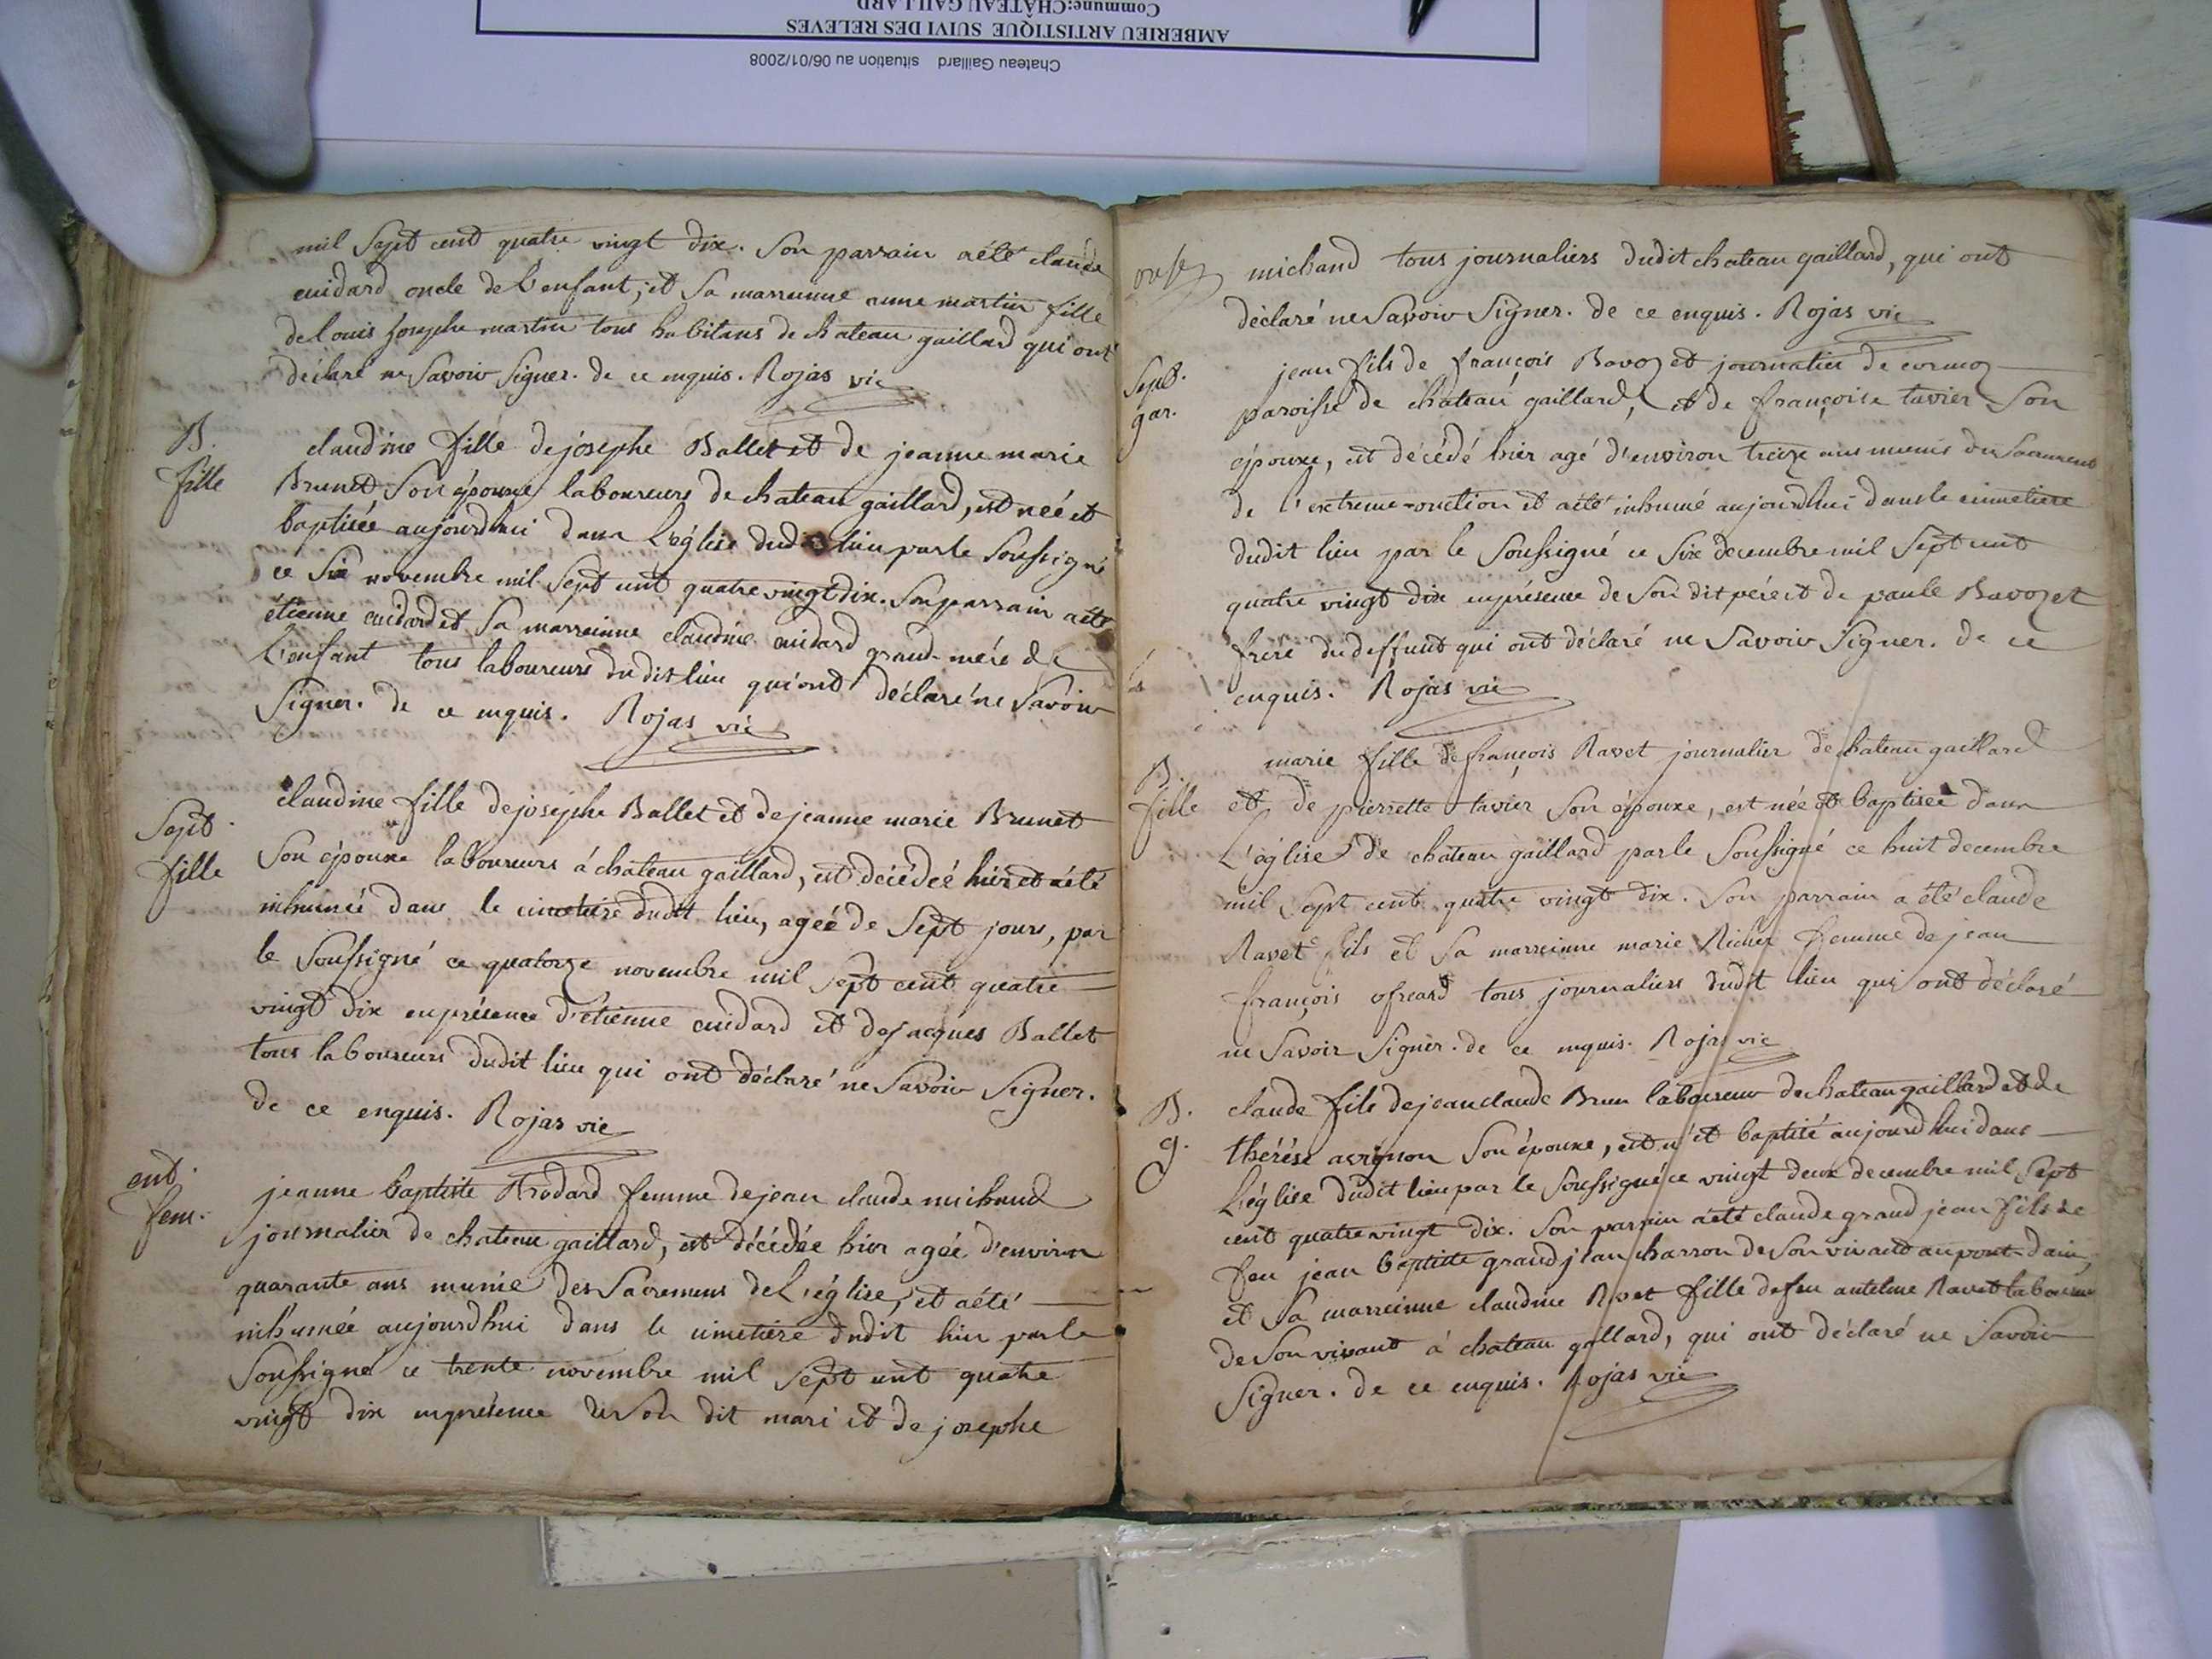 Commune:CHÂTEAU GAILLARD
AMBERIEU ARTISTIQUE SUIVI DES RELEVES
Chateau Gaillard situation au 06/01/2008
mil Sept cent quatre vingt dix. Son parrain a été claude
cuidard oncle de l'enfant, et Sa marreinne anne martin fille
de louis Josephe martin tous habitans de chateau gaillard qui ont
déclaré ne Savoir Signer. de ce enquis. Rojas vic
B.
fille
claudine fille de josephe Ballet et de jeanne marie
Brunet Son épouse laboureurs de chateau gaillard, est née et
baptisée aujourdhui dans L'église dudit lieu par le Soussigné
ce Six novembre mil Sept cent quatre vingt dix. Son parrain a été
étienne cuidard et Sa marreinne claudine cuidard grand-mère de
L'enfant tous laboureurs dudit lieu qui ont déclaré ne Savoir
Signer. de ce enquis. Rojas vic
Sept.
fille
claudine fille de josephe Ballet et de jeanne marie Brunet
Son épouse laboureurs á chateau gaillard, est décédeé hier et a été
inhumée dans le cimetiere dudit lieu, agée de Sept jours, par
le Soussigné ce quatorze novembre mil Sept cent quatre
vingt dix en présence d'étienne cuidard et de jacques Ballet
tous laboureurs dudit lieu qui ont déclaré ne Savoir Signer.
de ce enquis. Rojas vic
ent.
fem.
jeanne baptiste femme de jean claude michaud
journalier de chateau gaillard, est décédée hier agée d'environ
quarante ans munie des Sacremens de L'église, et a été
inhumée aujourdhui dans le cimetiere dudit lieu par le
Soussigné ce trente novembre mil Sept cent quatre
vingt dix en présence de Son dit mari et de josephe
michaud tous journaliers dudit chateau gaillard, qui ont
déclaré ne Savoir Signer. de ce enquis. Rojas vic
Sept.
gar.
jean fils de françois Bavozet journalier de cormoz
paroisse de chateau gaillard, et de françoise tavier Son
épouse, est décédé hier agé d'environ treize ans munis du Sacrement
de l'extreme-onction et a été inhumé aujourdhui dans le cimetiere
dudit lieu par le Soussigné ce Six decembre mil Sept cent
quatre vingt dix en présence de Son dit pére et de paule Bavozet
frére du deffunt qui ont déclaré ne Savoir Signer. de ce
enquis. Rojas vic
B.
fille
marie fille de françois Ravet journalier de chateau gaillard
et de pierrette tavier Son épouse, est née et baptisée dans
L'église de chateau gaillard par le Soussigné ce huit decembre
mil Sept cent quatre vingt dix. Son parrain a été claude
Ravet fils et Sa marreinne marie Richer femme de jean
françois tous journaliers dudit lieu qui ont déclaré
ne Savoir Signer. de ce enquis. Rojas vic
B.
g.
claude fils de jean claude Brun laboureur de chateau gaillard et de
thérése avignon Son épouse, est né et baptisé aujourdhui dans
L'église dudit lieu par le Soussigné ce vingt deux decembre mil Sept
cent quatre vingt dix. Son parrain a été claude grand jean fils de
feu jean baptiste grand jean charron de Son vivant au pont dain,
et Sa marreinne claudine Ravet fille de feu antelme Ravet laboureur
de Son vivant á chateau gallard, qui ont déclaré ne Savoir
Signer. de ce enquis. Rojas vic